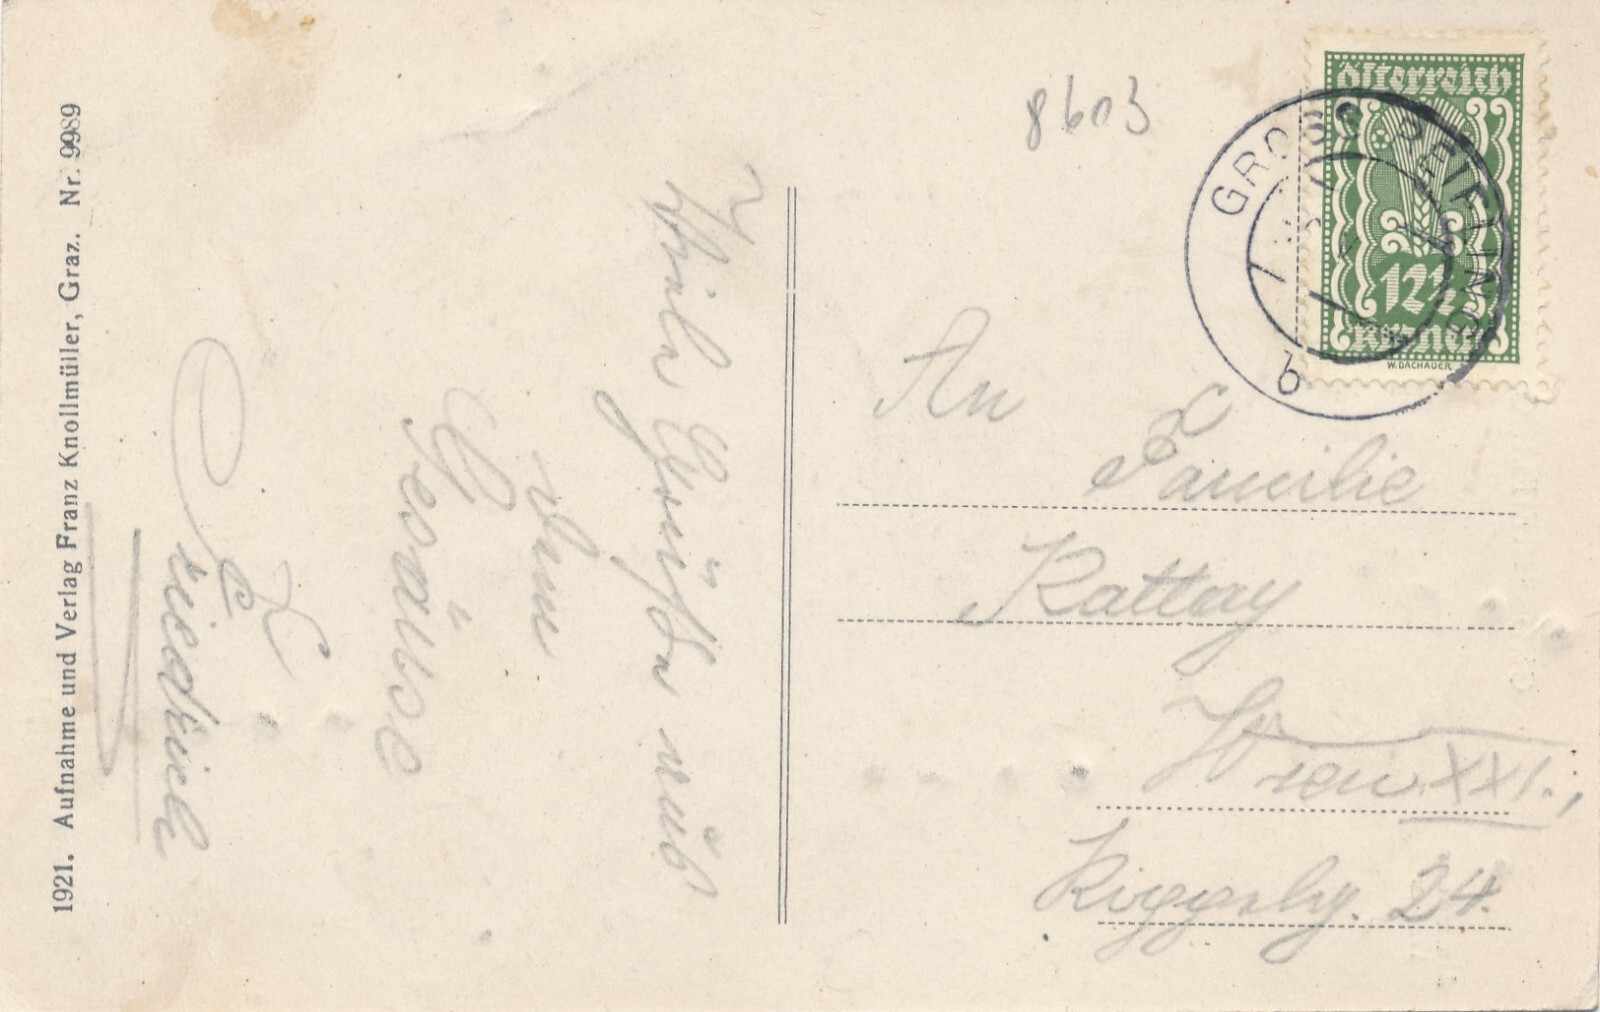 1921. Aufnahme und Verlag Franz Knollmüller, Graz. Nr. 9989
Viele Grüße aus
dem
Gesäuse
Friedrich
8603
österreich
12½
Kronen
W. DACHAUER
GROSS REIFLING
b
An
Familie
Kattay
Wien XXI.,
24.